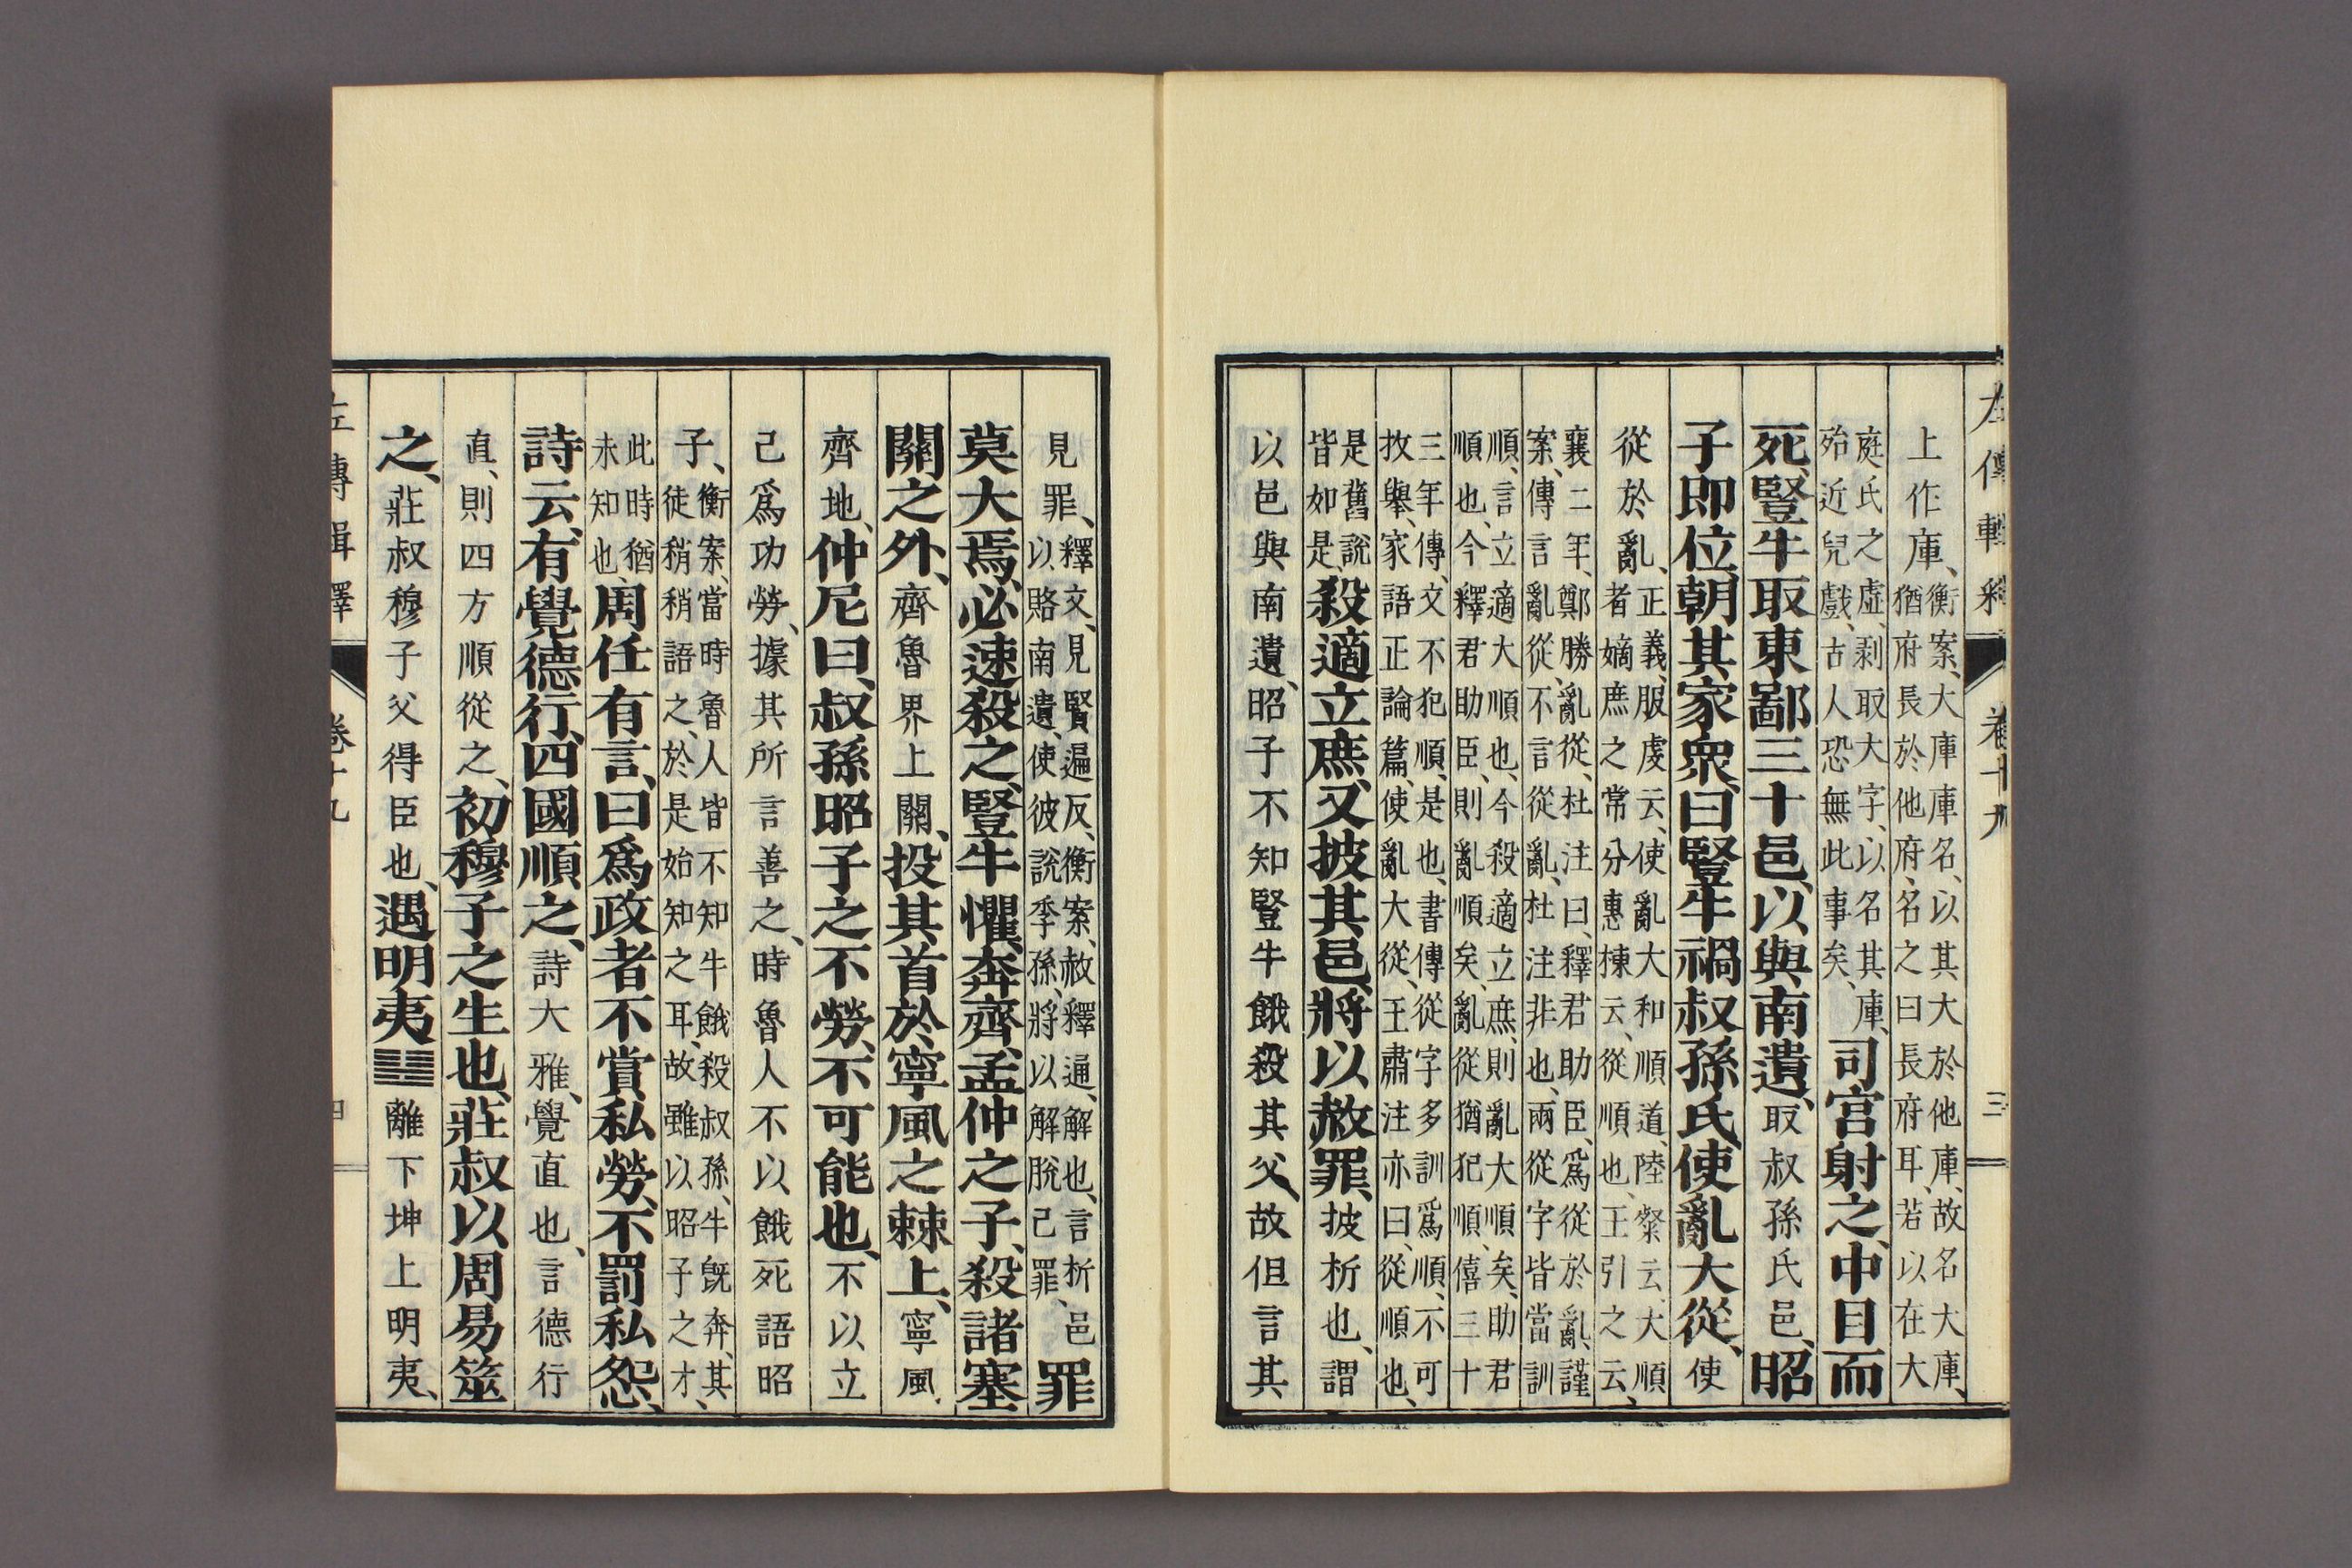 左傳輯釋
卷十九
三
上作庫、衡案、大庫庫名、以其大於他庫、故名大庫、
猶府長於他府、名之曰長府耳、若以在大
庭氏之虛、剥取大字、以名其庫、
殆近兒戲、古人恐無此事矣、司宮射之、中目而
死、豎牛取東鄙三十邑、以與南遺、取叔孫氏邑、昭
子即位、朝其家衆、曰豎牛禍叔孫氏、使亂大從、使
從於亂、正義、服虔云、使亂大和順道、陸粲云、大順
者嫡庶之常分、惠棟云、從順也、王引之云、
襄二年、鄭勝亂從、杜注曰、釋君助臣、爲從於亂、謹
案、傳言亂從、不言從亂、杜注非也、兩從字皆當訓
順、言立適大順也、今殺適立庶、則亂大順矣、助君
順也、今釋君助臣、則亂順矣、亂從猶犯順、僖三十
三年傳、文不犯順、是也、書傳從字多訓爲順、不可
枚舉、家語正論篇、使亂大從、王肅注亦曰、從順也、
是舊說
皆如是、殺適立庶、又披其邑、將以赦罪、披析也、謂
以邑與南遺、昭子不知豎牛餓殺其父、故但言其
見罪、釋文、見賢遍反、衡案、赦釋通、解也、言析邑
以賂南遺、使彼說季孫、將以解脫己罪、罪
莫大焉、必速殺之、豎牛懼、奔齊、孟仲之子、殺諸塞
關之外、齊魯界上關、投其首於寧風之棘上、寧風
齊地、仲尼曰、叔孫昭子之不勞、不可能也、不以立
己爲功勞、據其所言善之、時魯人不以餓死語昭
子、衡案、當時魯人皆不知牛餓殺叔孫、牛旣奔、其
徒稍稍語之、於是始知之耳、故雖以昭子之才、
此時猶
未知也、周任有言、曰爲政者不賞私勞、不罰私怨、
詩云、有覺德行、四國順之、詩大雅、覺直也、言德行
直、則四方順從之、初穆子之生也、莊叔以周易筮
之、莊叔穆子父得臣也、遇明夷䷣離下坤上明夷、
左傳輯釋
卷十九
四